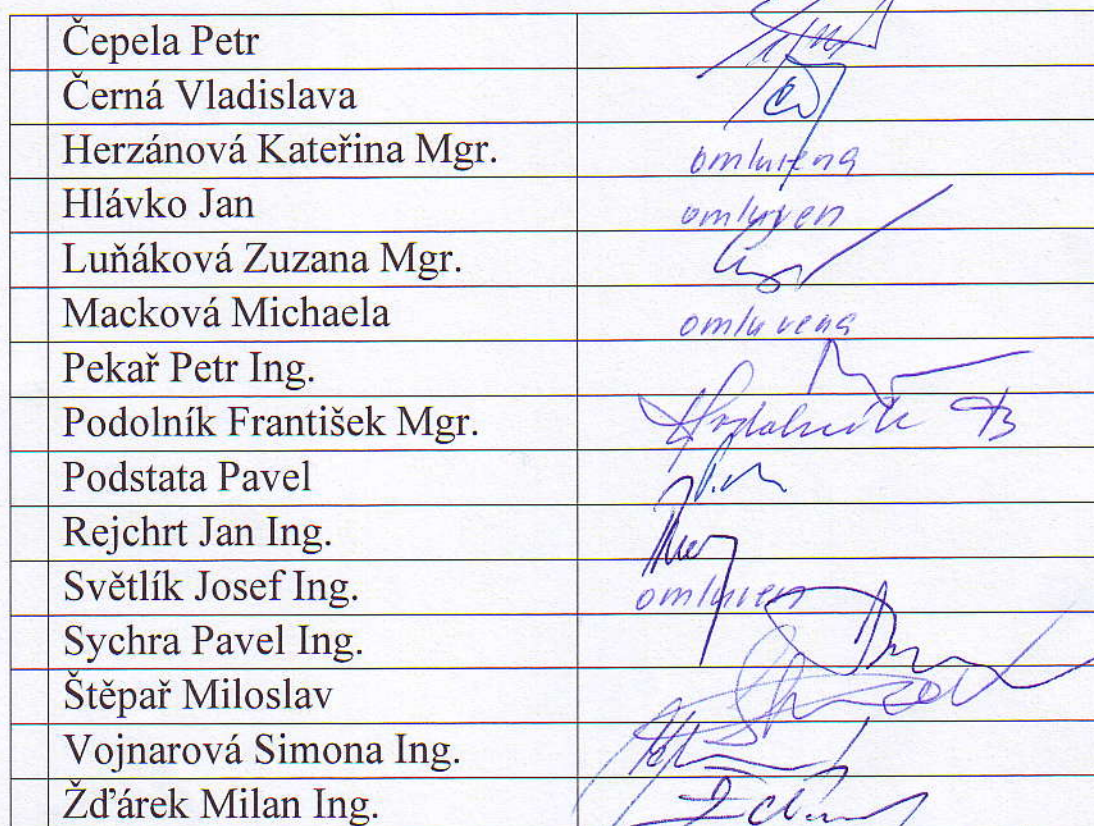 Čepela Petr
Černá Vladislava
Herzánová Kateřina Mgr. omluvena
Hlávko Jan omluven
Luňáková Zuzana Mgr.
Macková Michaela omluvena
Pekař Petr Ing.
Podolník František Mgr.
Podstata Pavel
Rejchrt Jan Ing.
Světlík Josef Ing. omluven
Sychra Pavel Ing.
Štěpař Miloslav
Vojnarová Simona Ing.
Žďárek Milan Ing.